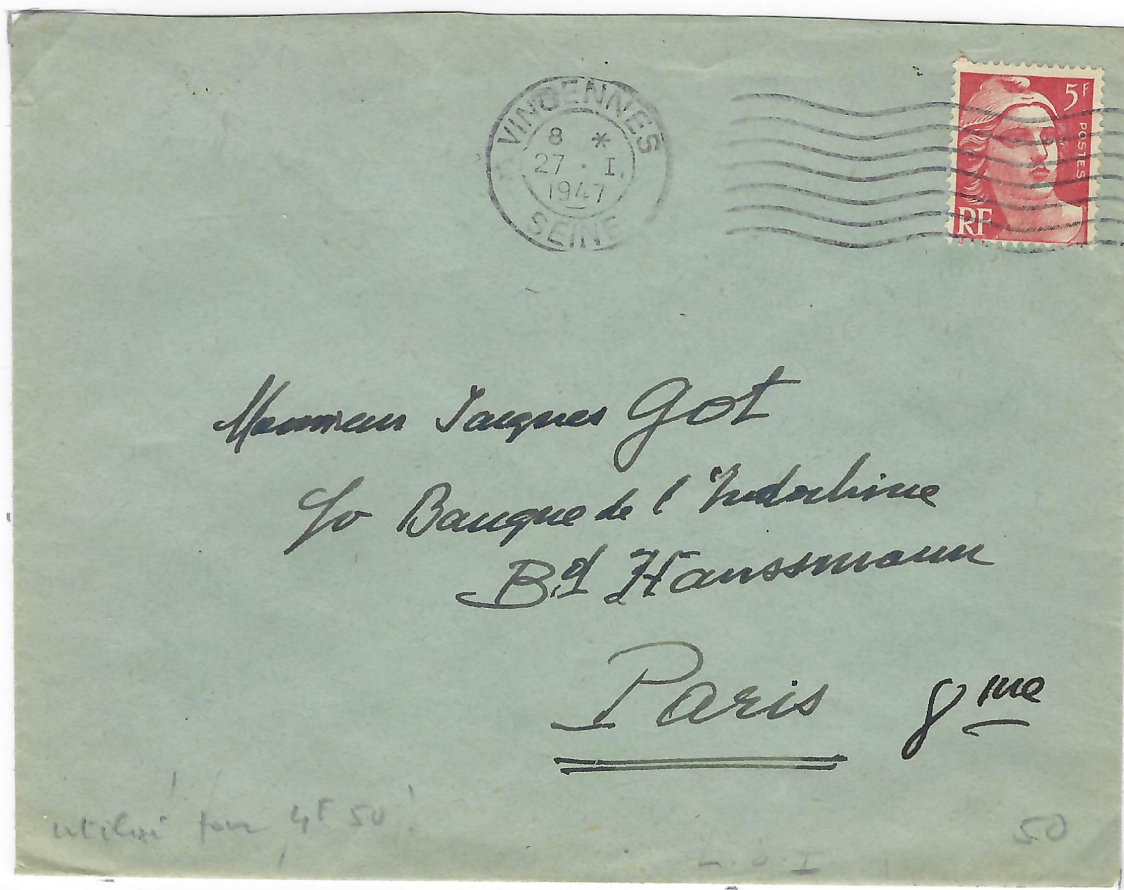 VINCENNES
8 *
27 . I.
1947
SEINE
5F
POSTES
RF
Monsieur Jacques Got
c/o Banque de l'Indochine
Bd Haussmann
Paris 8me
utilisé pour 4F50!
50